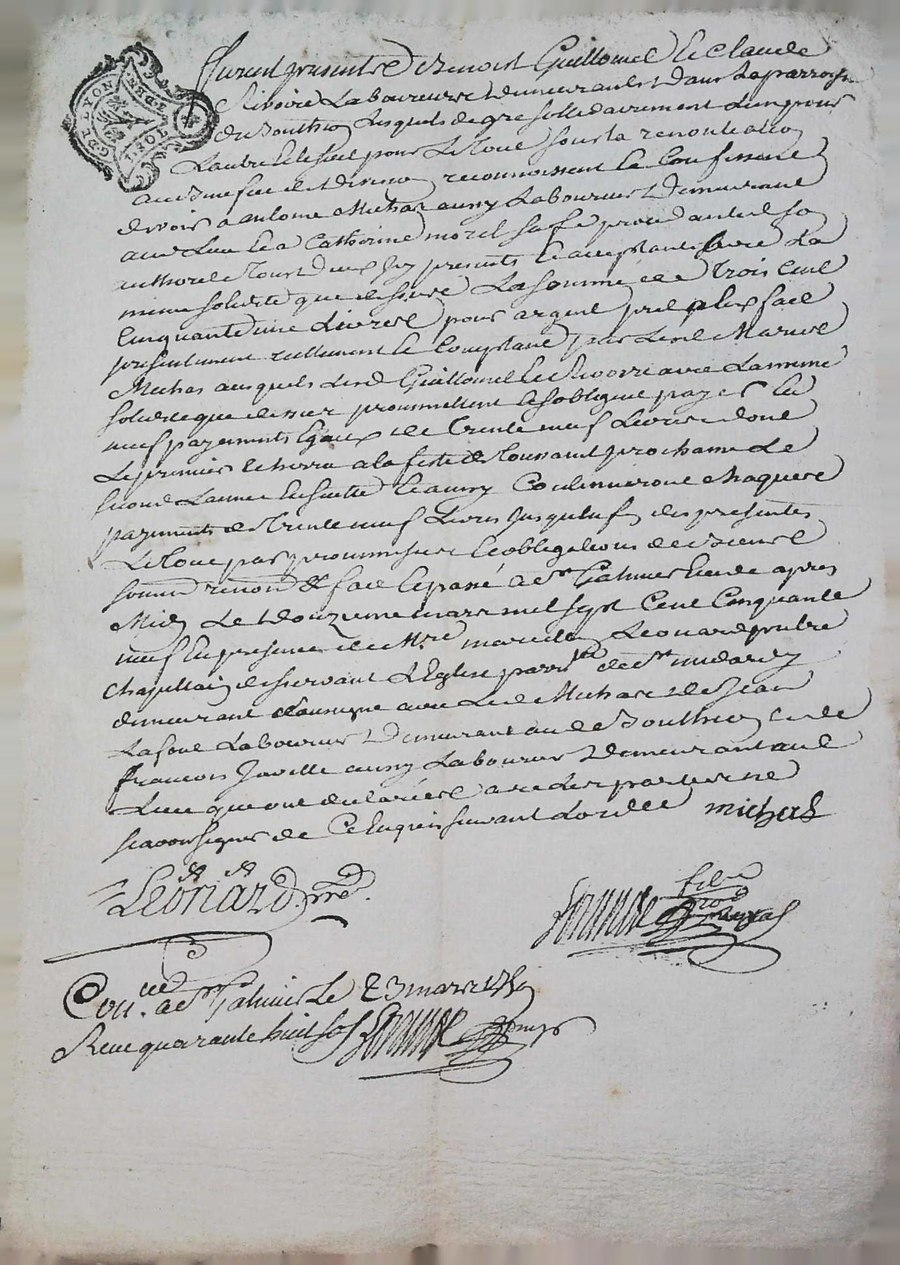 G. DE LYON
DEUX SOLS
Furent presents Benoist Guillomet et Claude
Rivoire Laboureurs demeurants dans La parroisse
de Lesquels de gré sollidairement L'un pour
L'autre et le seul pour Le tout sous la renonciation
au reconnoissent et Confessent
devoir a antoine Michas aussy Laboureur demeurant
aud Lieu et a Catherine morel sa fe procedante de son
authorité tous deux Icy presents et acceptants avec La
meme solidité que dessus La somme de Trois Cent
Cinquante une Livres pour argent presté a eux fait
presentement reellement et Comptant par Lesd Mariés
Michas ausquels Lesd Guillomet et Rivoire avec La meme
solidité que dessus promettent et s'obligent payer en
neuf payements Egaux de Trente neuf Livres dont
Le premier echerra a la feste de Toussaint prochaine Le
second L'année Ensuitte et ainsy Continueront chaques
payements de Trente neuf Livres Jusqu'a fin des presentes
Le tout par promesse et obligations de
soum renon &c fait et passé a st Galmier Etude apres
Midy Le douzieme mars mil sept Cent Cinquante
neuf En presence de Mre Leonard pretre
Chapellain desservant L'Eglise parrlle de st medard y
demeurant soussigné avec Led Michas et de Jean
Laboureur demeurant aud et de
francois Javelle aussy Laboureur demeurant aud
Lieu qui ont declaré avec Les parties ne
scavoir signer de Ce Enquis suivant L'ord ce michas
Leonard ptre.
Con. a st Galmier Le 23 mars 1759
Receu quarante huit sols